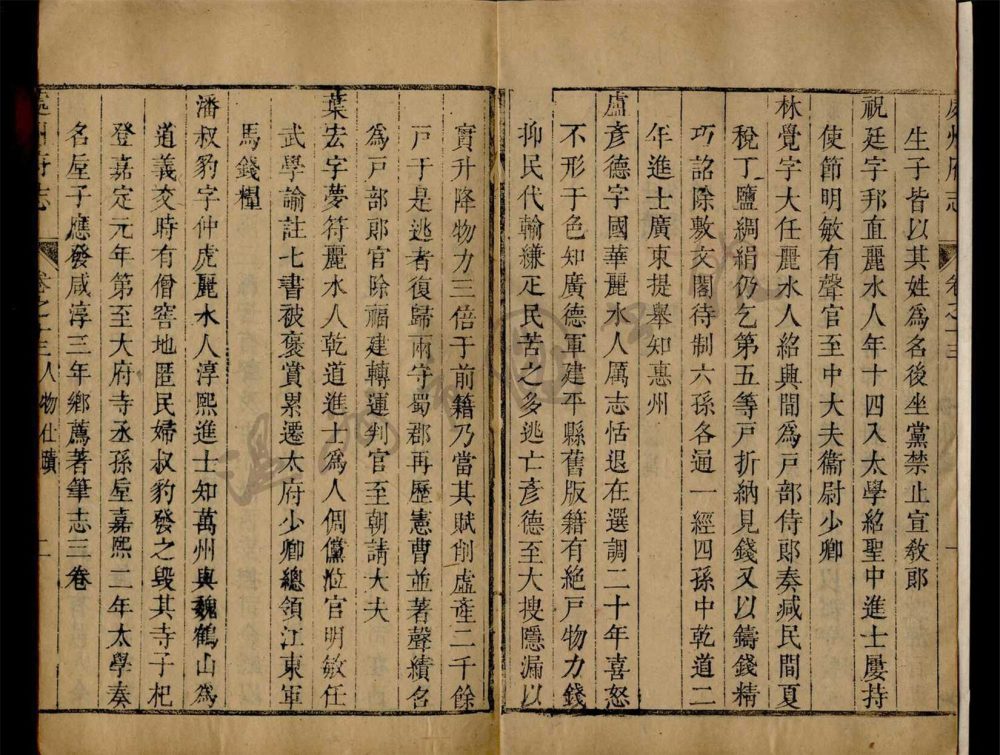 處州府志 卷之十三
生子皆以其姓為名後坐黨禁止宣教郎
祝廷字邦直麗水人年十四入太學紹聖中進士屢持
使節明敏有聲官至中大夫衞尉少卿
林覺字大任麗水人紹興間為戶部侍郎奏减民間夏
稅丁鹽綢絹仍乞第五等戶折納見錢又以鑄錢精
巧詔除敷文閣待制六孫各通一經四孫中乾道二
年進士廣東提舉知惠州
盧彥德字國華麗水人厲志恬退在選調二十年喜怒
不形于色知廣德軍建平縣舊版籍有絕戶物力錢
抑民代輸縑疋民苦之多逃亡彥德至大搜隱漏以
實升降物力三倍于前籍乃當其賦削虛產二千餘
戶于是逃者復歸兩守蜀郡再歷憲曹並著聲績名
為戶部郎官除福建轉運判官至朝請大夫
葉宏字夢符麗水人乾道進士為人倜儻涖官明敏任
武學諭註七書被褒賞累遷太府少卿總領江東軍
馬錢糧
潘叔豹字仲虎麗水人淳熙進士知萬州與魏鶴山為
道義交時有僧窖地匿民婦叔豹發之毀其寺子杞
登嘉定元年第至大府寺丞孫垕嘉熙二年太學奏
名垕子應發咸淳三年鄉薦著筆志三卷
處州府志 卷之十三人物仕蹟 二